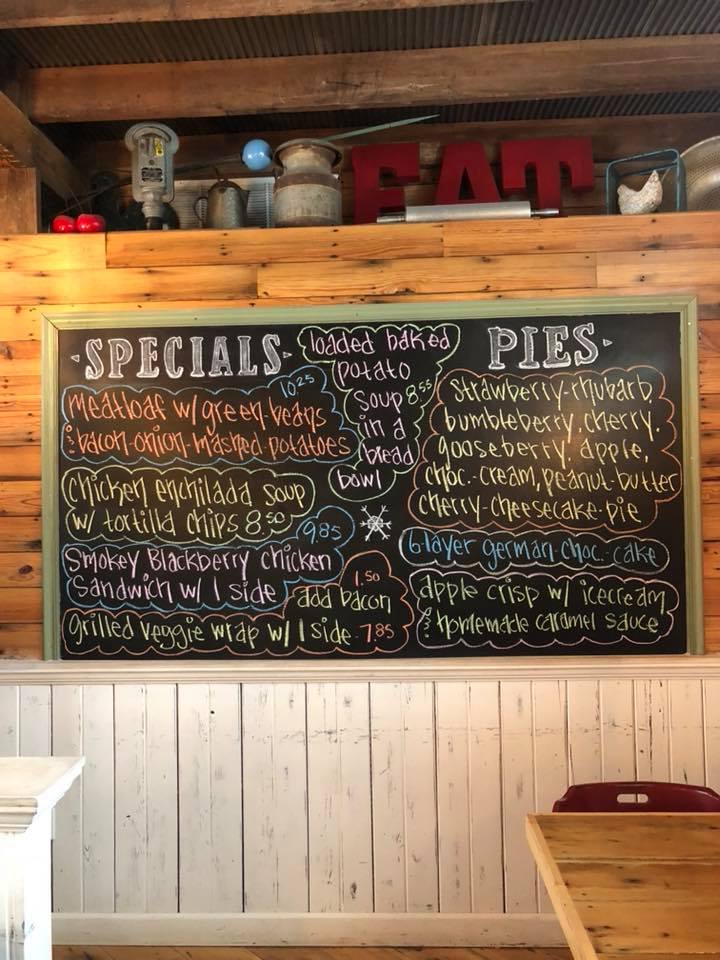 EAT
·SPECIALS·
10.25
meatloaf w/ green beans
& bacon-onion-mashed potatoes
chicken enchilada soup
w/ tortilla chips 8.50
9.85
Smokey Blackberry chicken
Sandwich w/ 1 side
1.50
add bacon
grilled veggie wrap w/ 1 side - 7.85
loaded baked
potato
soup 8.55
in a
bread
bowl
PIES·
Strawberry-rhubarb,
bumbleberry, cherry,
gooseberry, apple,
choc.-cream, peanut-butter
cherry-cheesecake-pie
6-layer german-choc.-cake
apple crisp w/ icecream
& homemade caramel sauce